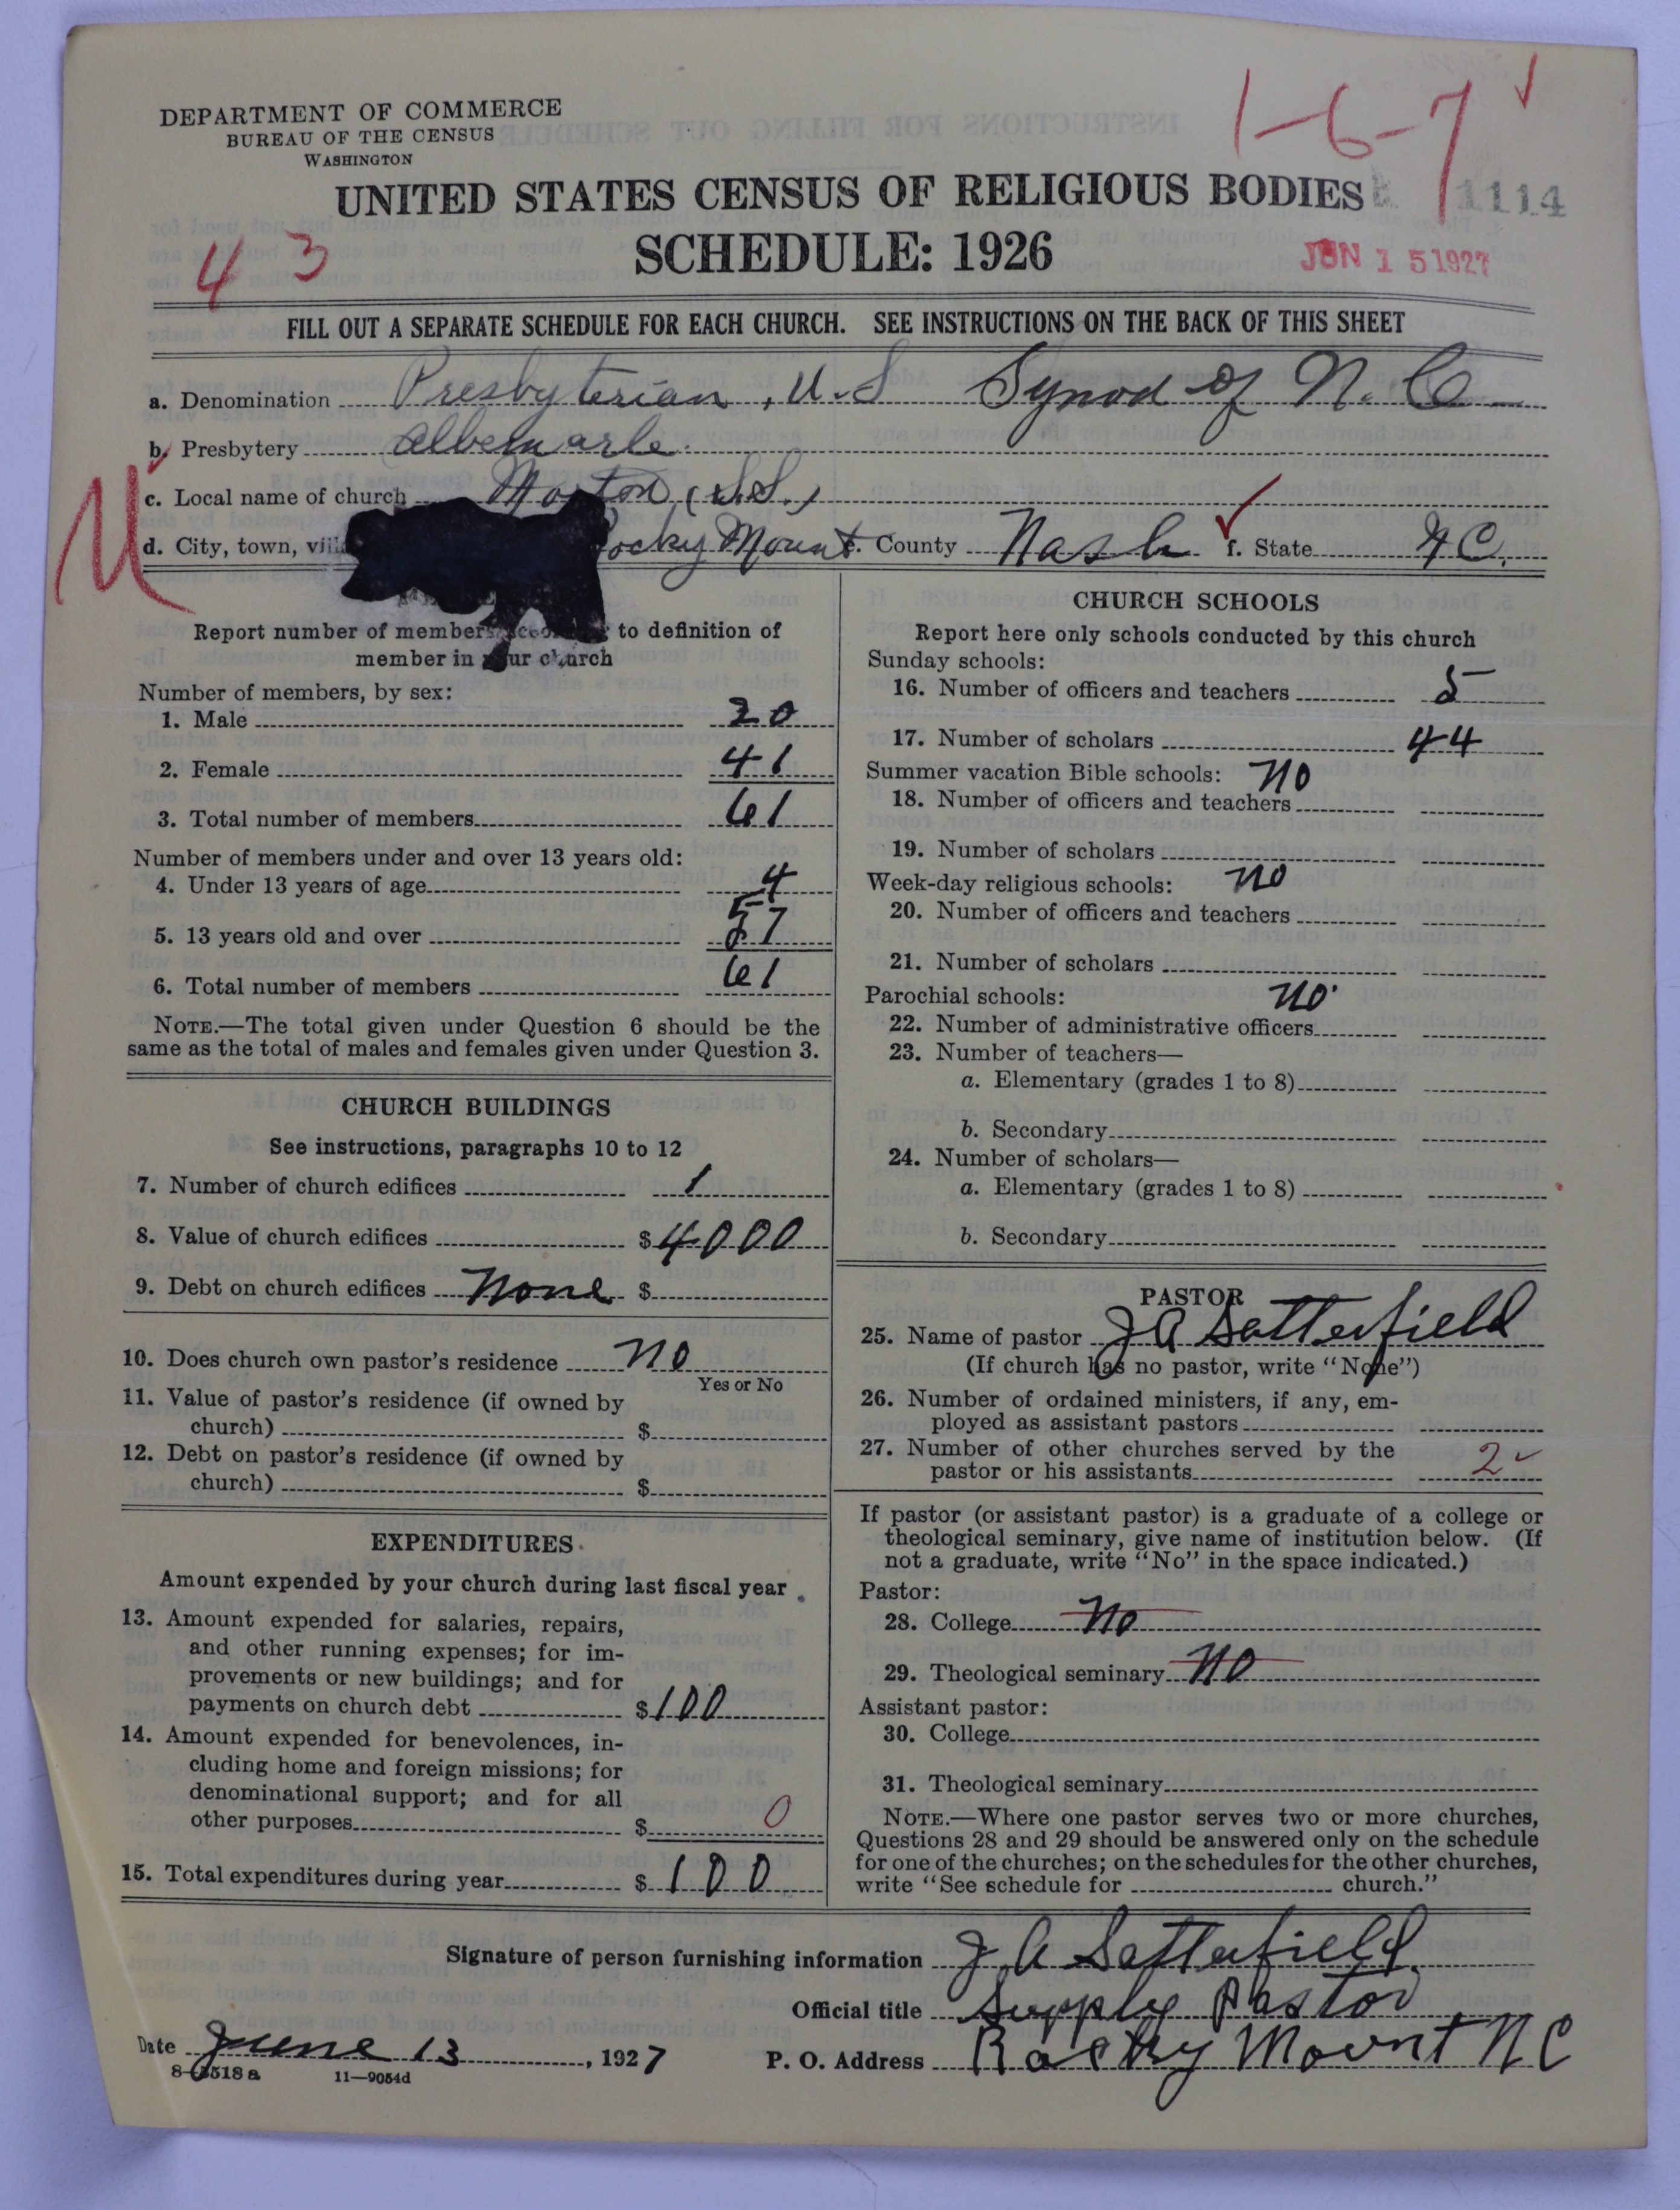 DEPARTMENT OF COMMERCE
BUREAU OF THE CENSUS
WASHINGTON
1-6-7
UNITED STATES CENSUS OF RELIGIOUS BODIES
1114
SCHEDULE: 1926
4 3
JUN 15 1927
FILL OUT A SEPARATE SCHEDULE FOR EACH CHURCH. SEE INSTRUCTIONS ON THE BACK OF THIS SHEET
a. Denomination Presbyterian, U.S Synod of N.C
b. Presbytery Albemarle
c. Local name of church (S.S.)
d. City, town, Rocky Mount County Nash f. State N C.
Report number of members to definition of
member in your church
Number of members, by sex:
1. Male 20
2. Female 41
3. Total number of members 61
Number of members under and over 13 years old:
4. Under 13 years of age 4
5. 13 years old and over 57
6. Total number of members 61
NOTE.—The total given under Question 6 should be the
same as the total of males and females given under Question 3.
CHURCH BUILDINGS
See instructions, paragraphs 10 to 12
7. Number of church edifices 1
8. Value of church edifices $4000
9. Debt on church edifices None $
10. Does church own pastor's residence no
Yes or No
11. Value of pastor's residence (if owned by
church) $
12. Debt on pastor's residence (if owned by
church) $
EXPENDITURES
Amount expended by your church during last fiscal year
13. Amount expended for salaries, repairs,
and other running expenses; for im-
provements or new buildings; and for
payments on church debt $100
14. Amount expended for benevolences, in-
cluding home and foreign missions; for
denominational support; and for all
other purposes $ 0
15. Total expenditures during year $ 100
CHURCH SCHOOLS
Report here only schools conducted by this church
Sunday schools:
16. Number of officers and teachers 5
17. Number of scholars 44
Summer vacation Bible schools: no
18. Number of officers and teachers
19. Number of scholars
Week-day religious schools: no
20. Number of officers and teachers
21. Number of scholars
Parochial schools: no
22. Number of administrative officers
23. Number of teachers—
a. Elementary (grades 1 to 8)
b. Secondary
24. Number of scholars—
a. Elementary (grades 1 to 8)
b. Secondary
PASTOR
25. Name of pastor J A Satterfield
(If church has no pastor, write "None")
26. Number of ordained ministers, if any, em-
ployed as assistant pastors
27. Number of other churches served by the
pastor or his assistants 2
If pastor (or assistant pastor) is a graduate of a college or
theological seminary, give name of institution below. (If
not a graduate, write "No" in the space indicated.)
Pastor:
28. College no
29. Theological seminary no
Assistant pastor:
30. College
31. Theological seminary
NOTE.—Where one pastor serves two or more churches,
Questions 28 and 29 should be answered only on the schedule
for one of the churches; on the schedules for the other churches,
write "See schedule for church."
Signature of person furnishing information J A Satterfield
Official title Supply Pastor
Date June 13, 1927 P. O. Address Rocky Mount N C
8-5518a 11—9054d